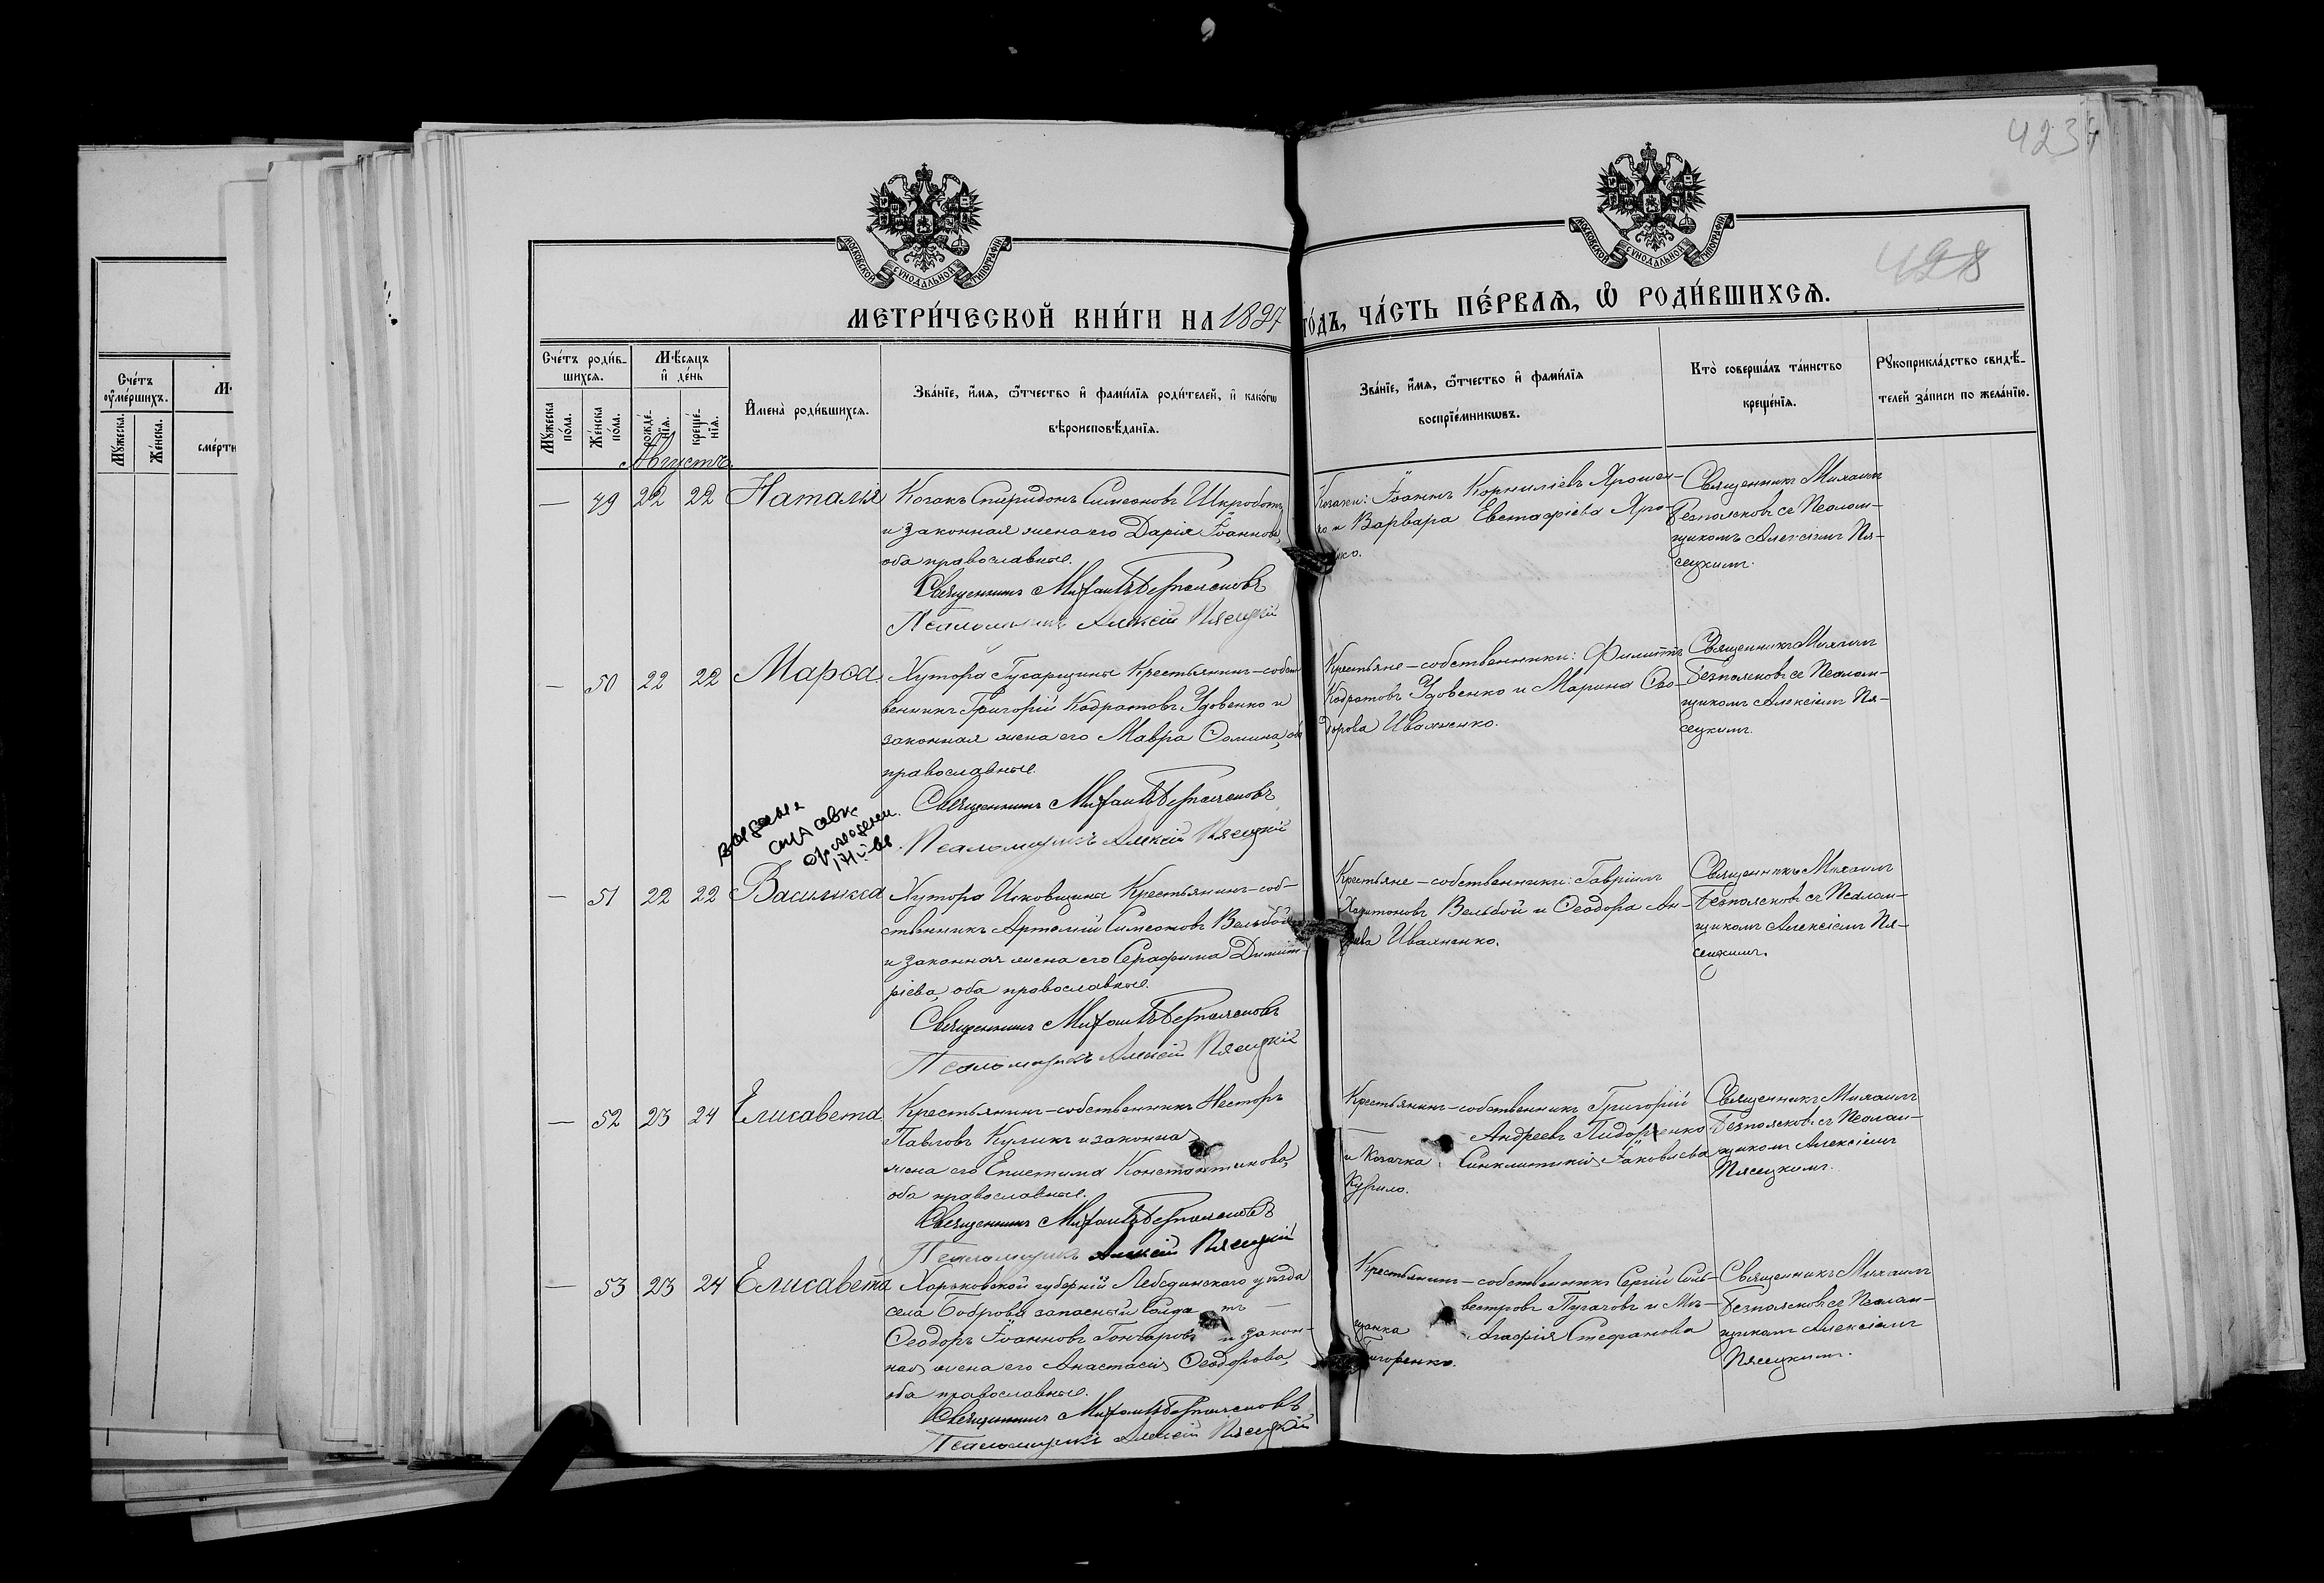 423
428
МОСКОВСКОЙ СѴНОДАЛЬНОЙ ТИПОГРАФІИ
МОСКОВСКОЙ СѴНОДАЛЬНОЙ ТИПОГРАФІИ
МЕТРИ́ЧЕСКОЙ КНИ́ГИ НА 1897 ГО́ДЪ, ЧА́СТЬ ПЕ́РВАѦ, Ѽ РОДИ́ВШИХСѦ.
Сче́тъ оу҆ме́ршихъ.
Мꙋ́жеска.
Же́нска.
сме́рти
Сче́тъ роди́в-
шихсѧ.
Мꙋ́жеска по́ла.
Же́нска по́ла.
Мѣ́сѧцъ
и҆ де́нь
рожде́-
нїѧ.
креще́-
нїѧ.
И҆мена̀ роди́вшихсѧ.
Зва́нїе, и҆́мѧ, ѻ҆́тчество и҆ фами́лїѧ роди́телей, и҆ како́гѡ
вѣроисповѣ́данїѧ.
Зва́нїе, и҆́мѧ, ѻ҆́тчество и҆ фами́лїѧ
воспрїе́мникѡвъ.
Кто̀ соверша́лъ та́инство
креще́нїѧ.
Рꙋкоприкла́дство свидѣ́-
телей за́писи по жела́нїю.
Августъ.
— 49 22 22 Наталія
Козакъ Спиридонъ Симеоновъ Шкроботъ
и законная жена его Дарія Іоаннова,
оба православные.
Священникъ Михаилъ Безпоясковъ
Псаломщикъ Алексій Пясецкій
Козаки: Іоаннъ Корниліевъ Ярошен-
ко и Варвара Евстафіева Яро-
нко.
Священникъ Михаилъ
Безпоясковъ съ Псалом-
щикомъ Алексіемъ Пя-
сецкимъ.
— 50 22 22 Марѳа
Хутора Гусарщины Крестьянинъ-собст
венникъ Григорій Кодратовъ Удовенко и
законная жена его Мавра Ѳомина, оба
православные.
Священникъ Михаилъ Безпоясковъ
Псаломщикъ Алексій Пясецкій
Крестьяне-собственники: Филиппъ
Кодратовъ Удовенко и Марина Ѳео-
дорова Ивахненко.
Священникъ Михаилъ
Безпоясковъ съ Псалом-
щикомъ Алексіемъ Пя-
сецкимъ.
— 51 22 22 Василисса
Хутора Исковщина Крестьянинъ-соб-
ственникъ Артемій Симеоновъ Вельбой
и законная жена его Серафима Димит-
ріева, оба православные.
Священникъ Михаилъ Безпоясковъ
Псаломщикъ Алексій Пясецкій
Крестьяне-собственники: Гавріилъ
Харитоновъ Вельбой и Ѳеодора Ан-
реева Ивахненко.
Священникъ Михаилъ
Безпоясковъ съ Псалом-
щикомъ Алексіемъ Пя-
сецкимъ.
— 52 23 24 Елисавета
Крестьянинъ-собственникъ Несторъ
Павловъ Куликъ и законная
жена его Епистима Константинова,
оба православные.
Священникъ Михаилъ Безпоясковъ
Псаломщикъ Алексій Пясецкій
Крестьянинъ-собственникъ Григорій
Андреевъ Пидорченко
и Козачка Синклитикія Іаковлева
Курило.
Священникъ Михаилъ
Безпоясковъ съ Псалом-
щикомъ Алексіемъ
Пясецкимъ.
— 53 23 24 Елисавета
Харьковской губерніи Лебединскаго уѣзда
села Боброва запасный Солда тъ —
Ѳеодоръ Іоанновъ Гончаровъ и закон-
ная жена его Анастасія Ѳеодорова,
оба православные.
Священникъ Михаилъ Безпоясковъ
Псаломщикъ Алексій Пясецкій
Крестьянинъ-собственникъ Сергій Сель-
вестровъ Пугачовъ и Мѣ-
щанка Агафія Стефанова
Григоренко.
Священникъ Михаилъ
Безпоясковъ съ Псалом-
щикомъ Алексіемъ
Пясецкимъ.